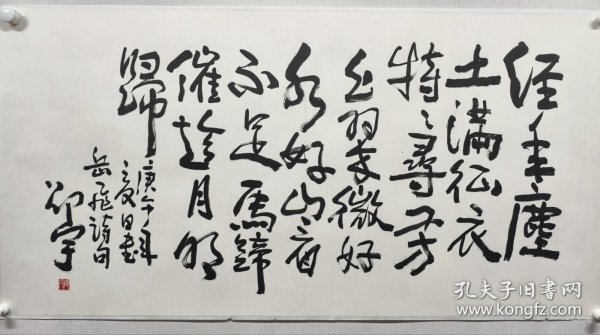 经年塵
土滿征衣
特〻尋芳
上翠微好
水好山看
不足馬蹄
催趁月明
歸
庚午年
之夏日書
岳飛詩句
邵宇
孔夫子旧书网
www.kongfz.com